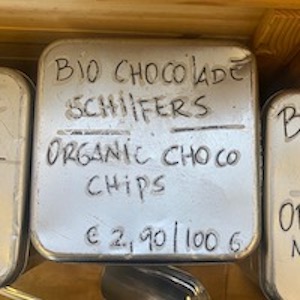 BIO CHOCOLADE
SCHILFERS
ORGANIC CHOCO
CHIPS
€ 2,90/100 G